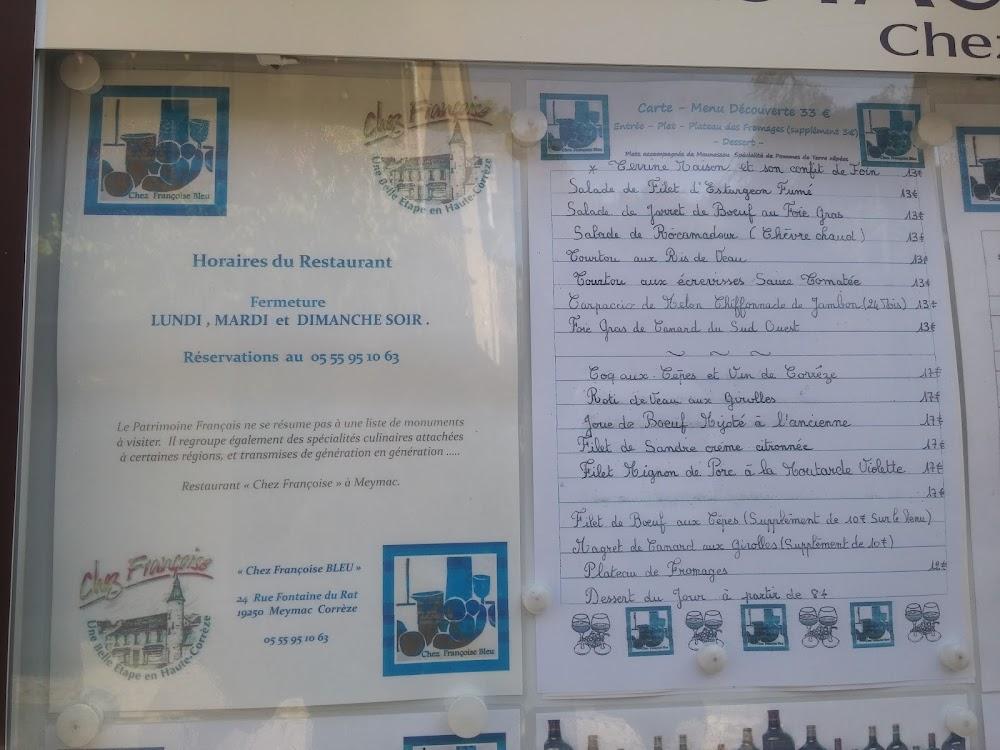 Chez
Chez Françoise
Une Belle Etape en Haute-Corrèze
Chez Françoise Bleu
Horaires du Restaurant
Fermeture
LUNDI , MARDI et DIMANCHE SOIR .
Réservations au 05 55 95 10 63
Le Patrimoine Français ne se résume pas à une liste de monuments
à visiter. Il regroupe également des spécialités culinaires attachées
à certaines régions, et transmises de génération en génération .....
Restaurant « Chez Françoise » à Meymac.
Chez Françoise
Une Belle Etape en Haute-Corrèze
« Chez Françoise BLEU »
24 Rue Fontaine du Rat
19250 Meymac Corrèze
05 55 95 10 63
Chez Françoise Bleu
Carte - Menu Découverte 33 €
Entrée - Plat - Plateau des Fromages (supplément 3€)
- Dessert -
Plats accompagnés de Mounassou Spécialité de Pommes de Terre râpées
* Terrine Maison et son confit de Foin 13€
Salade de Filet d'Esturgeon Fumé 13€
Salade de Jarret de Boeuf au Foie Gras 13€
Salade de Rocamadour (Chèvre chaud) 13€
Tourtou aux Ris de Veau 13€
Tourtou aux écrevisses Sauce Tomatée 13€
Carpaccio de Melon Chiffonnade de Jambon (24 Mois) 13€
Foie Gras de Canard du Sud Ouest 13€
Coq aux Cèpes et Vin de Corrèze 17€
Roti de Veau aux Girolles 17€
Joue de Boeuf Mijoté à l'ancienne 17€
Filet de Sandre crème citronnée 17€
Filet Mignon de Porc à la Moutarde Violette 17€
17€
Filet de Boeuf aux Cèpes (Supplément de 10€ Sur le Menu)
Magret de Canard aux Girolles (Supplément de 10€)
Plateau de Fromages 12€
Dessert du Jour à partir de 8€